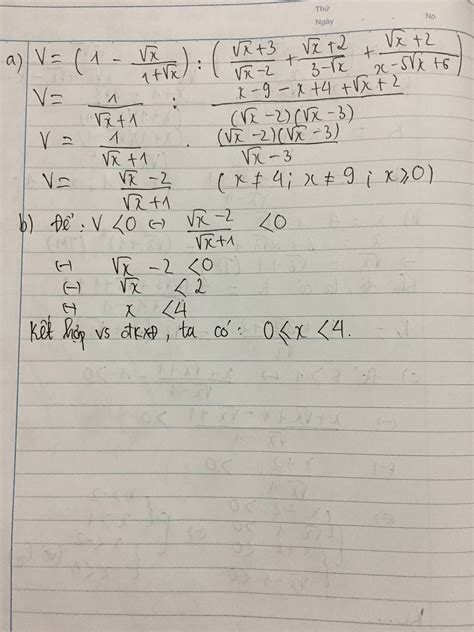 Thứ
Ngày No
a) V = (1 - √x/(1+√x)) : ((√x+3)/(√x-2) + (√x+2)/(3-√x) + (√x+2)/(x-5√x+6))
V = 1/(√x+1) : (x-9-x+4+√x+2)/((√x-2)(√x-3))
V = 1/(√x+1) . (√x-2)(√x-3)/(√x-3)
V = (√x-2)/(√x+1) (x ≠ 4; x ≠ 9; x ⩾ 0)
b) Để: V < 0 ↔ (√x-2)/(√x+1) < 0
↔ √x - 2 < 0
↔ √x < 2
↔ x < 4
Kết hợp vs đkxđ, ta có: 0 ⩽ x < 4.